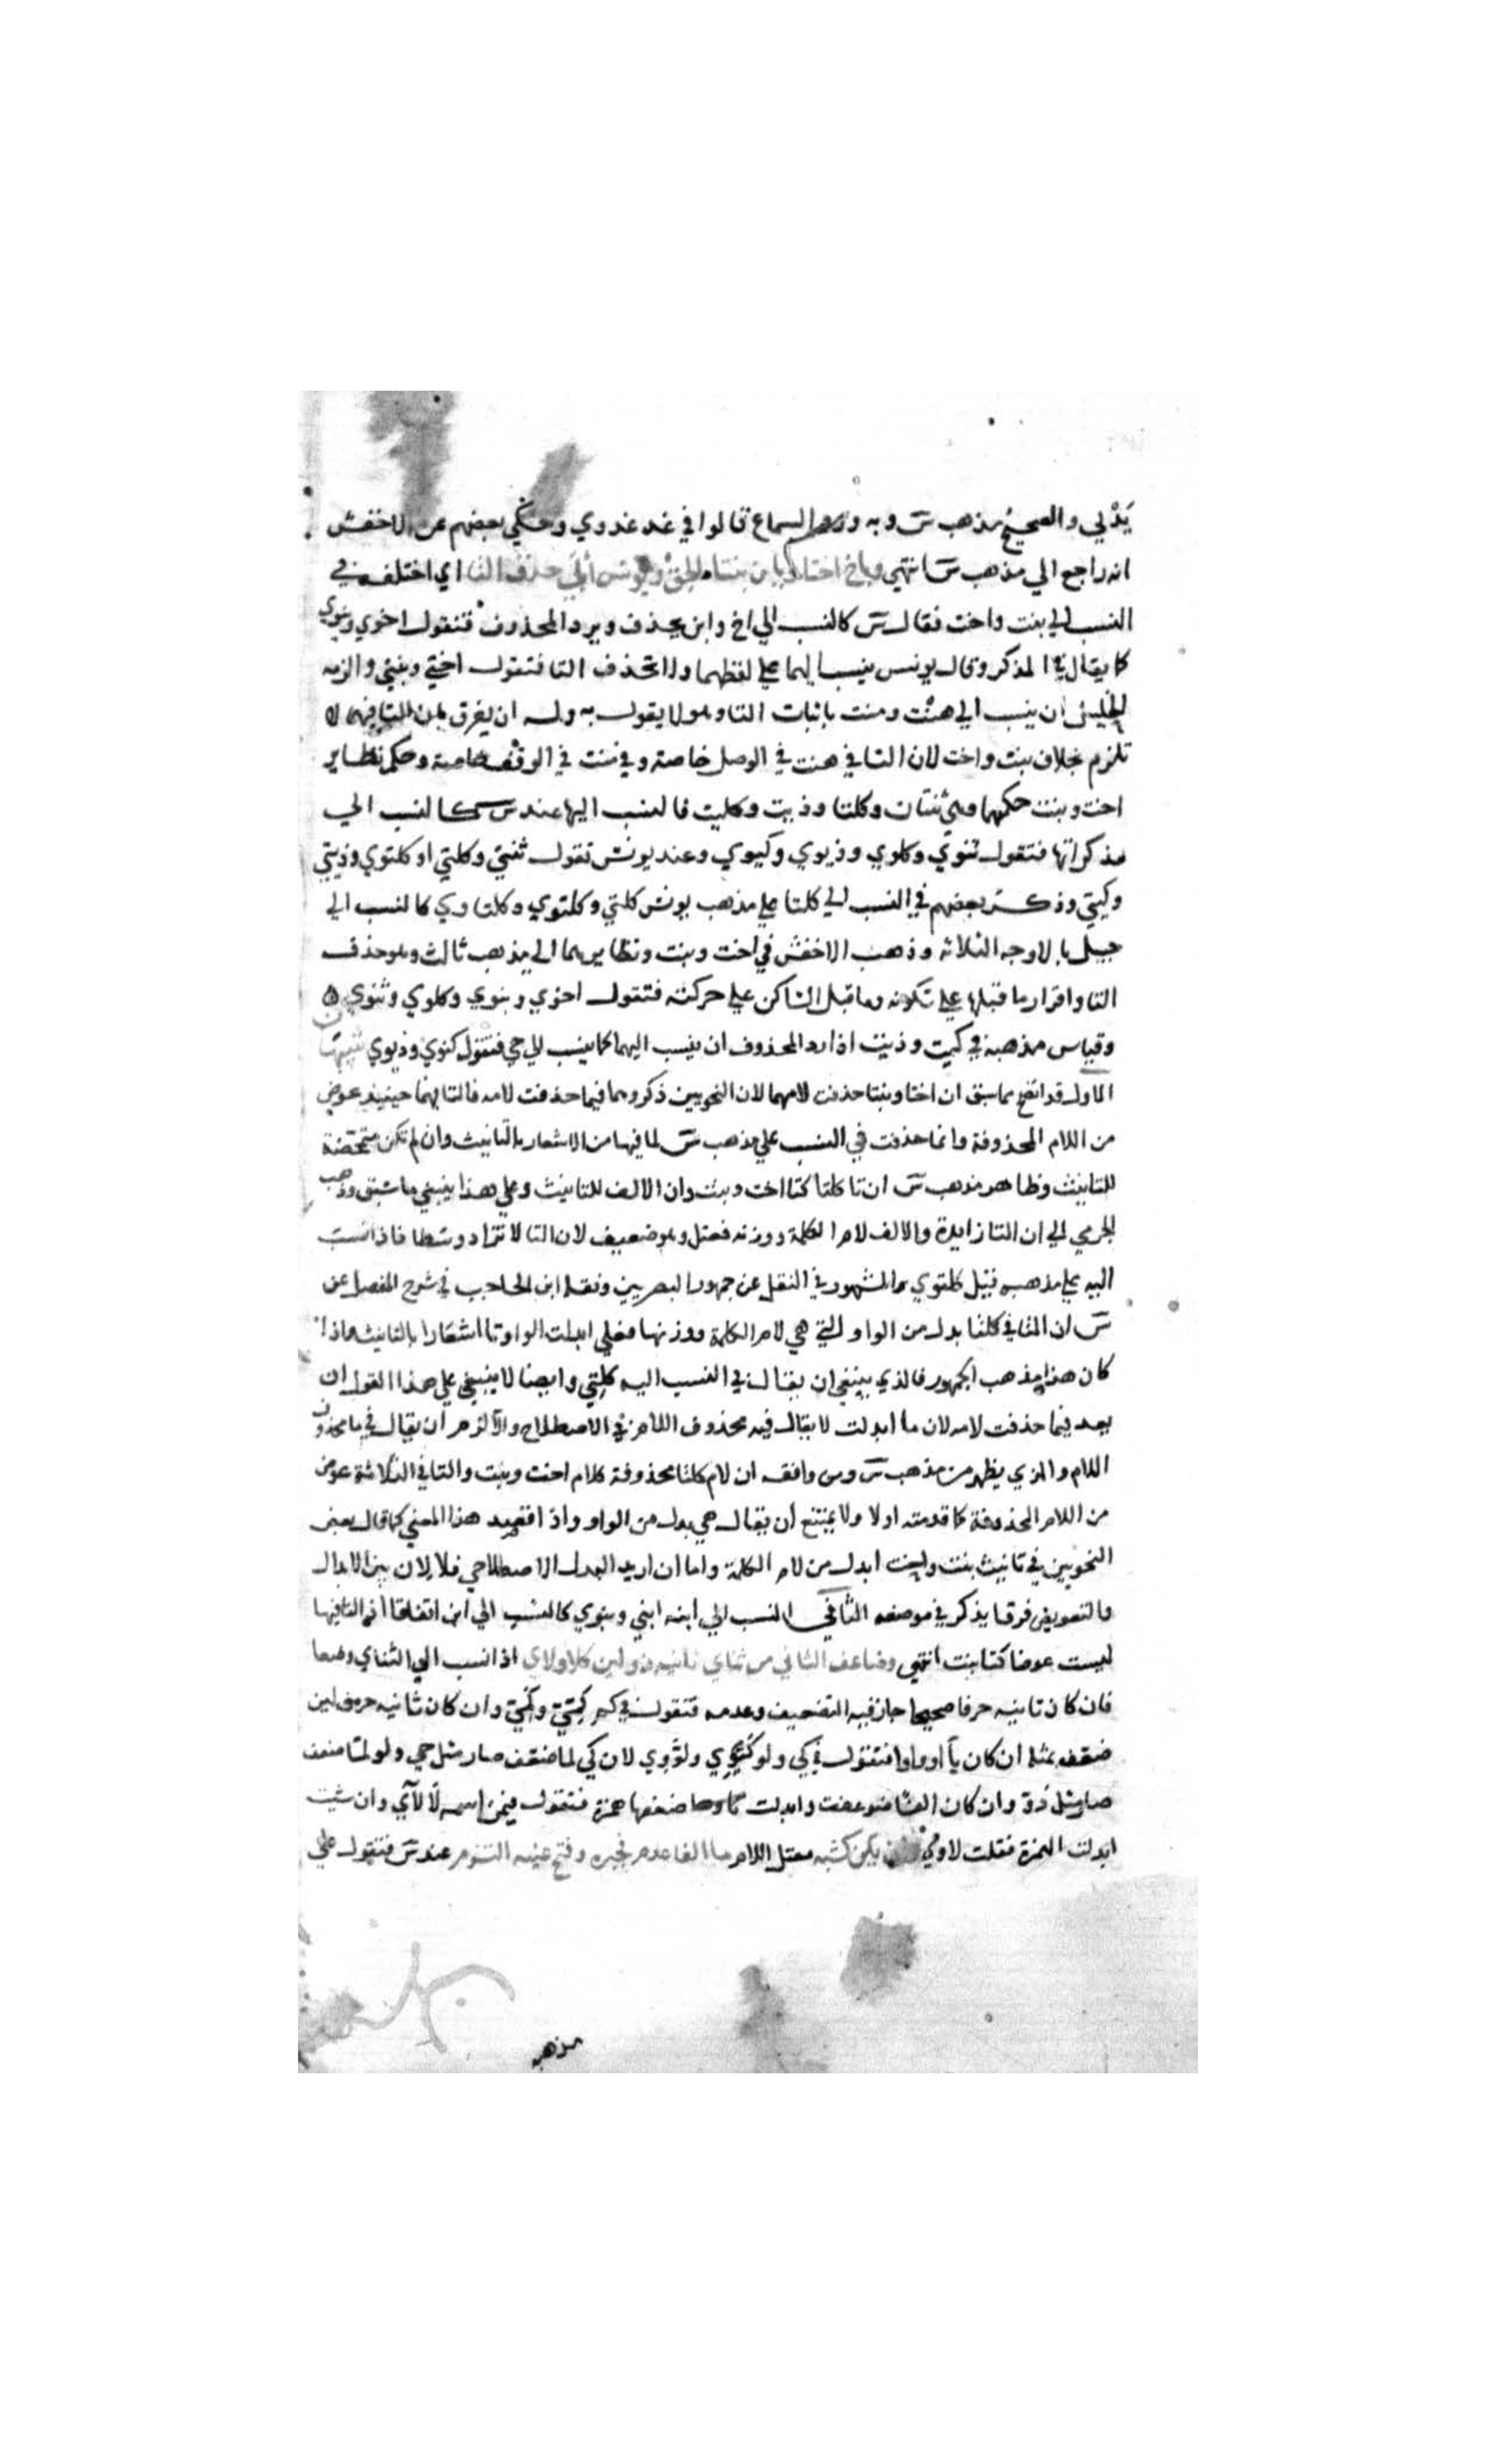 يَدْيي والصحيح مذهب س وبه ورد السماع قالوا في غد غدوي وحكي بعضهم عن الاخفش
انه راجع الي مذهب س انتهي وباخ اختا وبابن بنتا الحق ويونس أبي حذف التا اي اختلف في
النسب الي بنت واخت فقال س كالنسب الي اخ وابن بحذف ويرد المحذوف فتقول اخوي وبنوي
كما يقال في المذكر وقال يونس ينسب اليهما علي لفظهما ولا تحذف التا فتقول اختي وبنتي والزمه
الخليل ان ينسب الي هنت ومنت باثبات التا وهو لا يقول به وله ان يفرق بان التا فيهما لا
تلزم بخلاف بنت واخت لان التا في هنت في الوصل خاصة وفي منت في الوقف خاصة وحكم نظاير
اخت وبنت حكمهما وهي ثنتان وكلتا وذيت وكيت فالنسب اليها عند س كالنسب الي
مذكراتها فتقول ثنوي وكلوي وذيوي وكيوي وعند يونس تقول ثنتي وكلتي او كلتوي وذيتي
وكيتي وذكر بعضهم في النسب الي كلتا علي مذهب يونس كلتي وكلتوي وكلتاوي كالنسب الي
حبلي بالاوجه الثلاثه وذهب الاخفش في اخت وبنت ونظايرهما الي مذهب ثالث وهو حذف
التا واقرار ما قبلها علي سكونه وما قبل الساكن علي حركته فتقول اخوي وبنوي وكلوي وثنوي
وقياس مذهبه في كيت وذيت اذا رد المحذوف ان ينسب اليهما كما ينسب الي حي فتقول كيوي وذيوي تنبيهات
الاول قد اتضح مما سبق ان اختا وبنتا حذفت لامهما لان النحويين ذكروهما فيما حذفت لامه فالتا فيهما حينيذ عوض
من اللام المحذوفة وانما حذفت في النسب علي مذهب س لما فيها من الاشعار بالتانيث وان لم تكن متمحضة
للتانيث وظاهر مذهب س ان تا كلتا كتا اخت وبنت وان الالف للتانيث وعلي هذا ينبغي ما سبق وذهب
الجرمي الي ان التا زايدة والالف لام الكلمة ووزنه فعتل وهو ضعيف لان التا لا تزاد وسطا فاذا نسبت
اليه علي مذهبه قيل كلتوي والمشهور في النقل عن جمهور البصريين ونقله ابن الحاجب في شرح المفصل عن
س ان التا في كلتا بدل من الواو التي هي لام الكلمة ووزنها فعلي ابدلت الواو تا اشعارا بالتانيث واذا
كان هذا مذهب الجمهور فالذي ينبغي ان يقال في النسب اليه كلتي وايضا لا ينبغي علي هذا القول ان
يعد فيما حذفت لامه لان ما ابدلت لا يقال فيه محذوف اللام في الاصطلاح والا لزم ان يقال في ما محذوف
اللام والذي يظهر من مذهب س ومن وافقه ان لام كلتا محذوفة كلام اخت وبنت والتا في الثلاثة عوض
من اللام المحذوفة كما قدمته اولا ولا يمتنع أن يقال هي بدل من الواو واذا قصد هذا المعني كما قال بعض
النحويين في تا بنت واخت ابدل من لام الكلمة واما ان اريد البدل الاصطلاحي فلا لان بين الابدال
والتعويض فرقا يذكر في موضعه الثاني النسب الي ابنه ابني وبنوي كالنسب الي ابن اتفاقا اذ التا فيها
ليست عوضا كتا بنت انتهي وضاعف الثاني من ثناي ثانيه ذو لين كلا ولاي اذا نسب الي الثناي وضعا
فان كان ثانيه حرفا صحيحا جاز فيه التضعيف وعدمه فتقول في كم كمّيّ وكميّ وان كان ثانيه حرف لين
ضعف بمثله ان كان يآ او واوا فتقول في كي ولو كيوي ولوّوي لان كي لما ضعف صار مثل حي ولو لما ضعف
صار مثل دوّ وان كان الفا ضوعفت وابدلت ضعفها همزة فتقول فيمن اسمه لا لآي وان شيت
ابدلت الهمزة فقلت لاوي وان يكن كشيه معتل اللام ما الفا عدم فجبره وفتح عينه التزم عند س فتقول علي
مذهبه